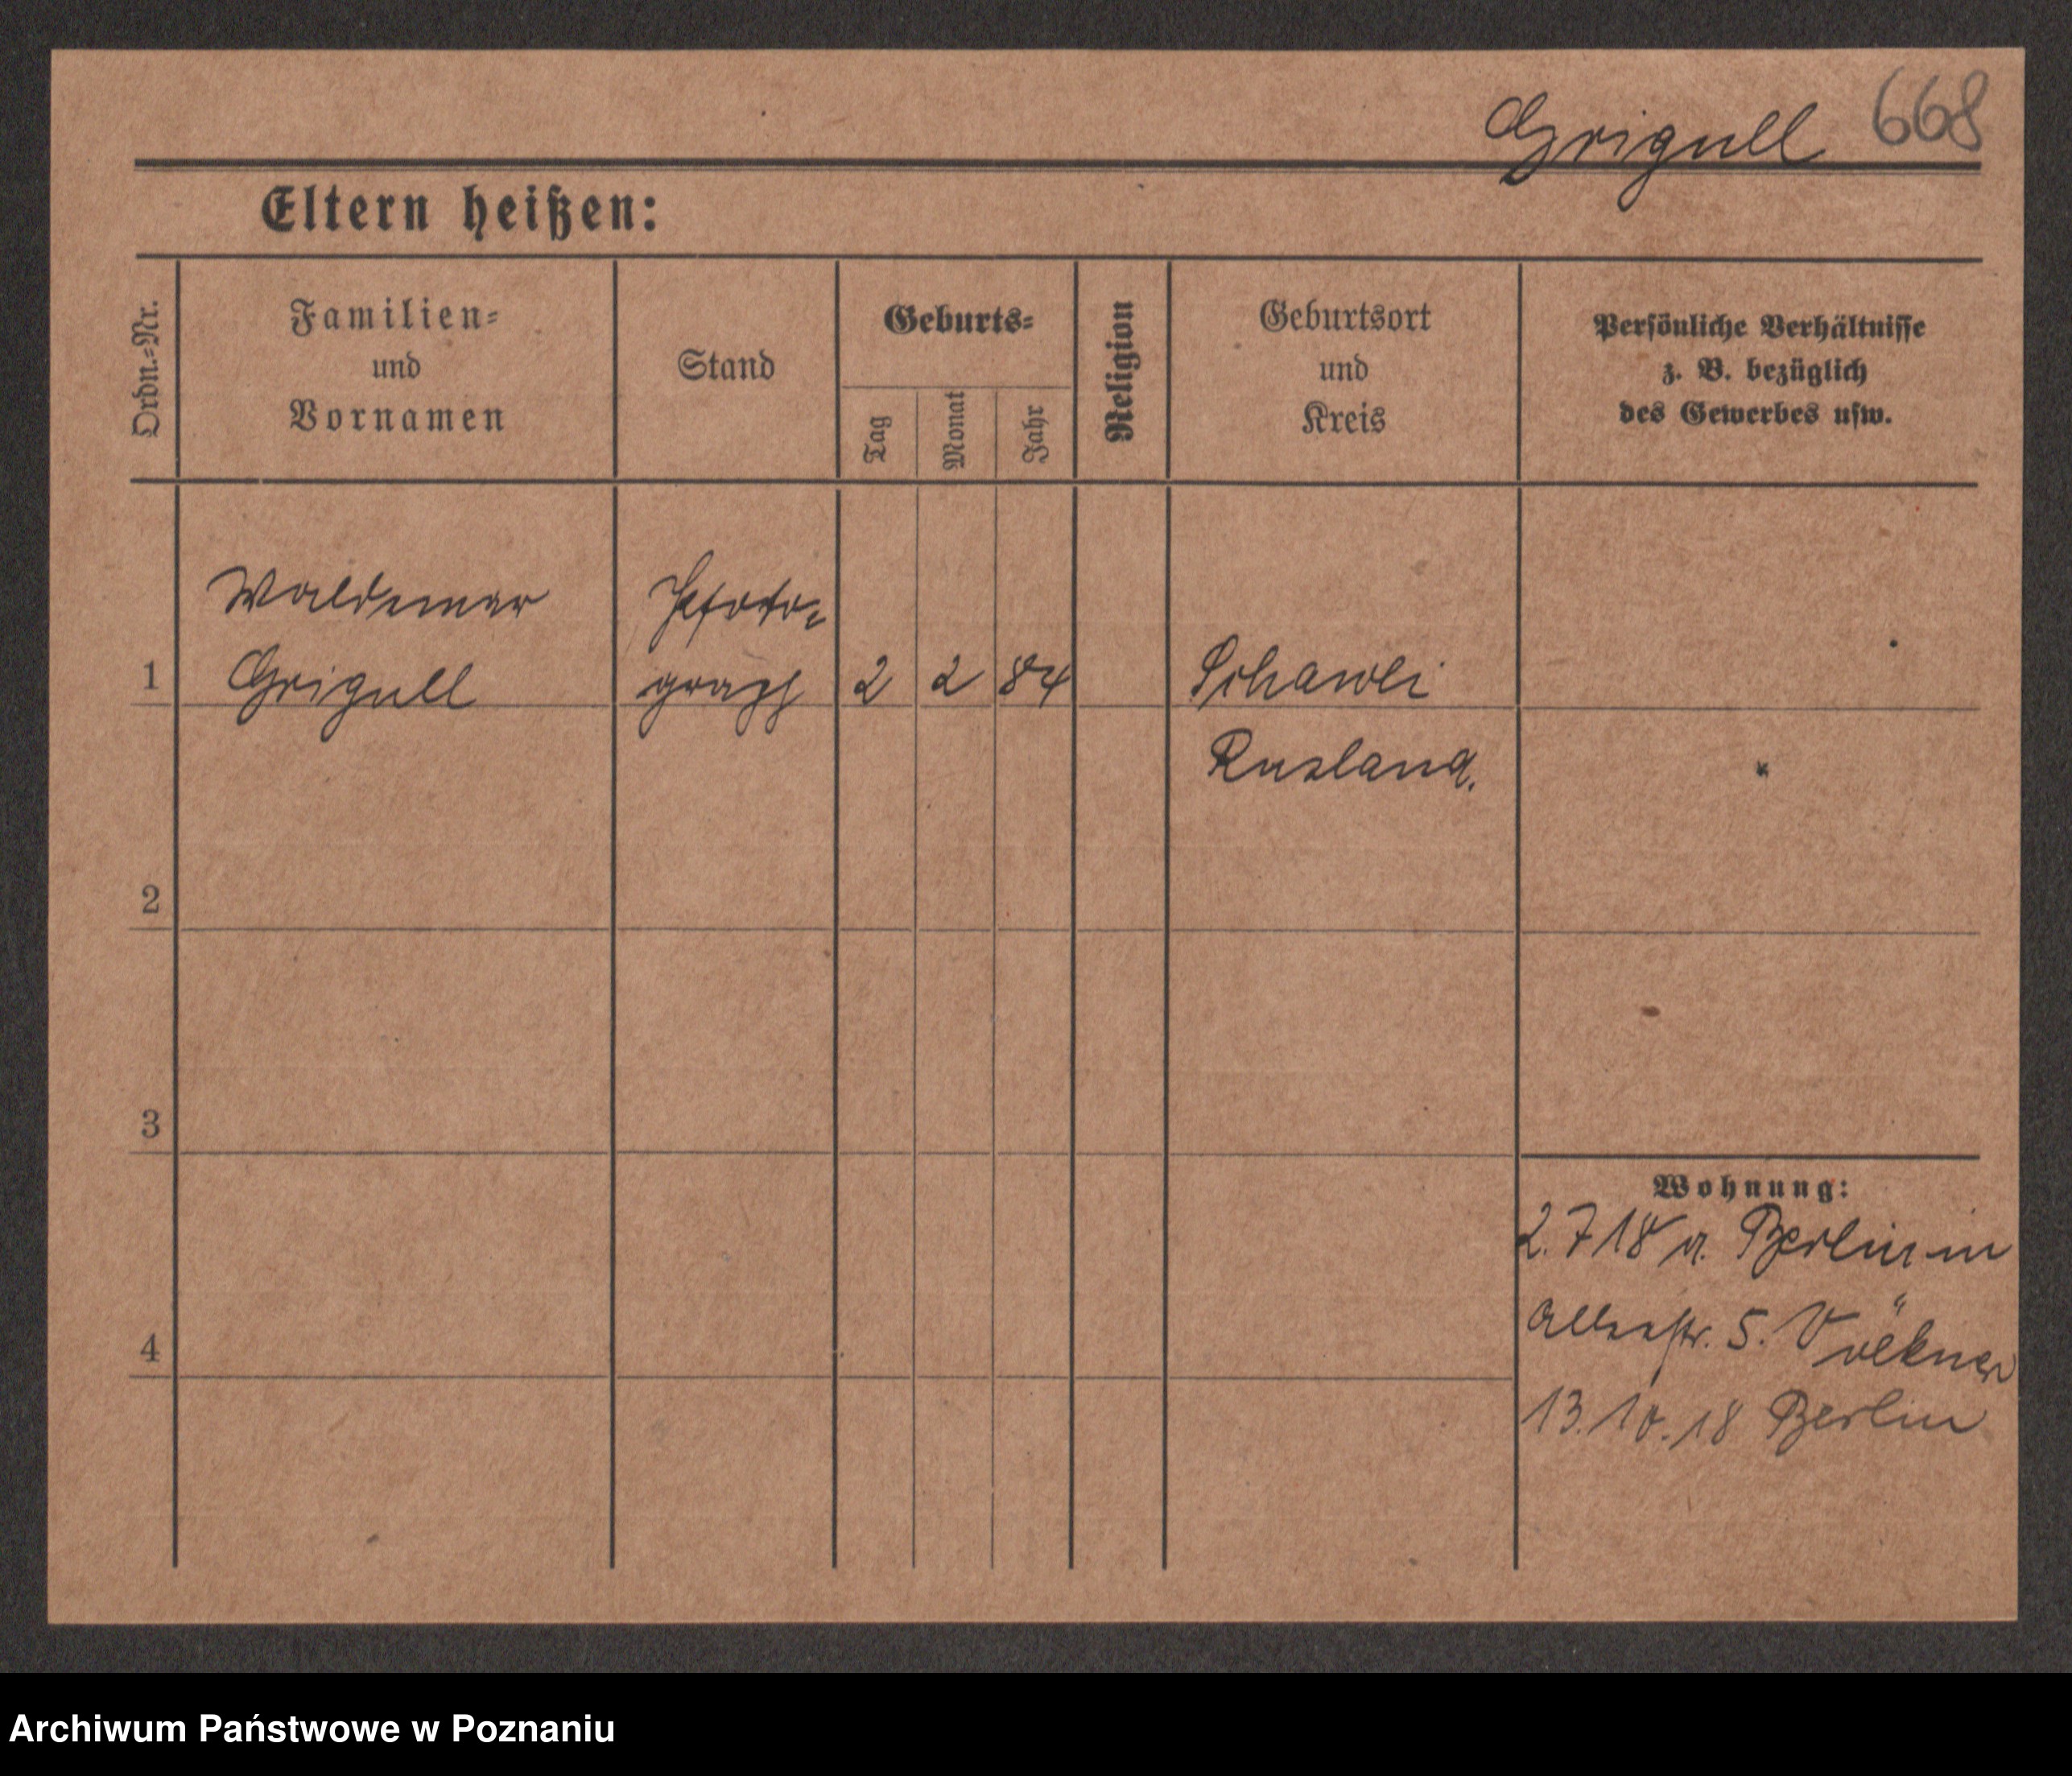 Grigull 668
Eltern heißen:
Ordn.=Nr.
Familien=
und
Vornamen
Stand
Geburts=
Tag
Monat
Jahr
Religion
Geburtsort
und
Kreis
Persönliche Verhältnisse
z. B. bezüglich
des Gewerbes usw.
Waldemar Photo=
1 Grigull graph 2 2 84 Schawli
Rusland.
2
3
4
Wohnung:
2. 7 18 v. Berlin in
str. 5. Völkner
13.10.18 Berlin
Archiwum Państwowe w Poznaniu